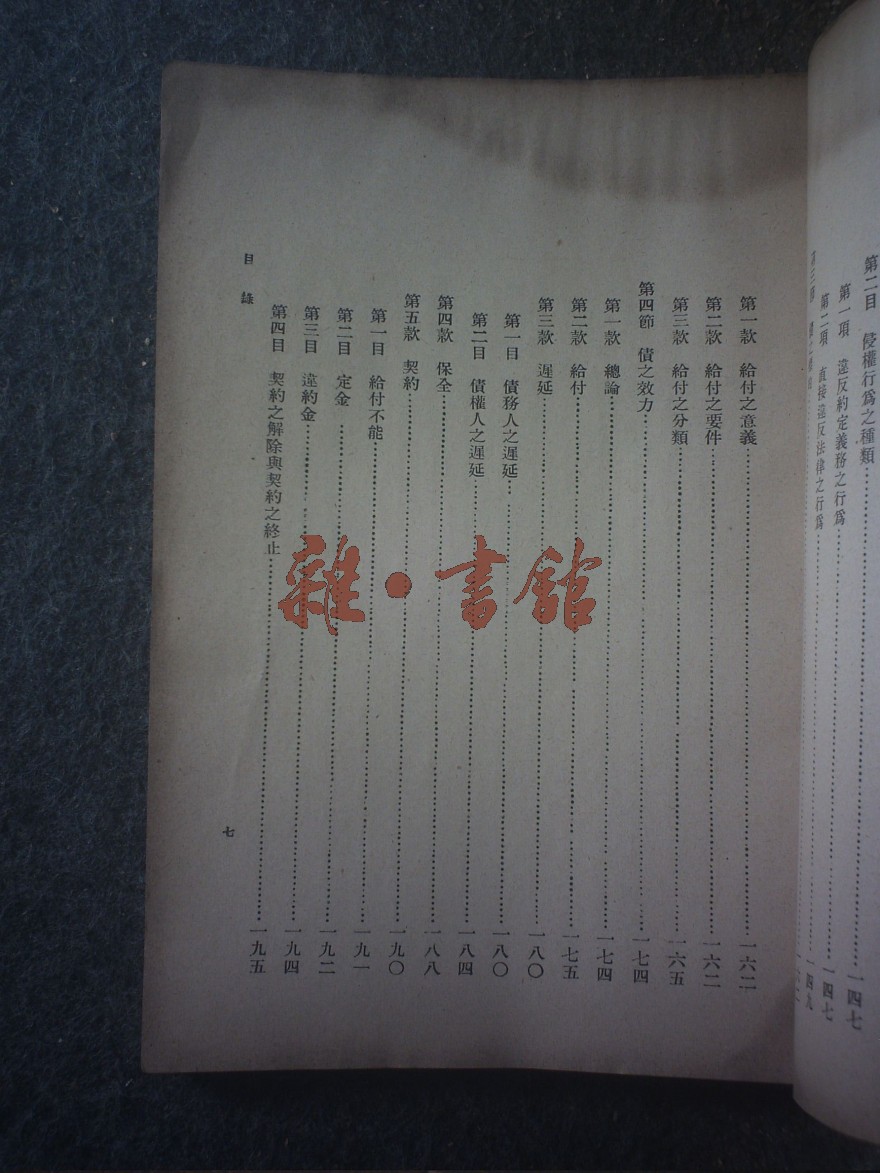 第二目　侵權行爲之種類……一四七
第一項　違反約定義務之行爲……一四七
第二項　直接違反法律之行爲……一四九
第一款　給付之意義……一六二
第二款　給付之要件……一六二
第三款　給付之分類……一六五
第四節　債之效力……一七四
第一款　總論……一七四
第二款　給付……一七五
第三款　遲延……一八〇
第一目　債務人之遲延……一八〇
第二目　債權人之遲延……一八四
第四款　保全……一八八
第五款　契約……一九〇
第一目　給付不能……一九一
第二目　定金……一九二
第三目　違約金……一九四
第四目　契約之解除與契約之終止……一九五
目錄
七
雜·書館